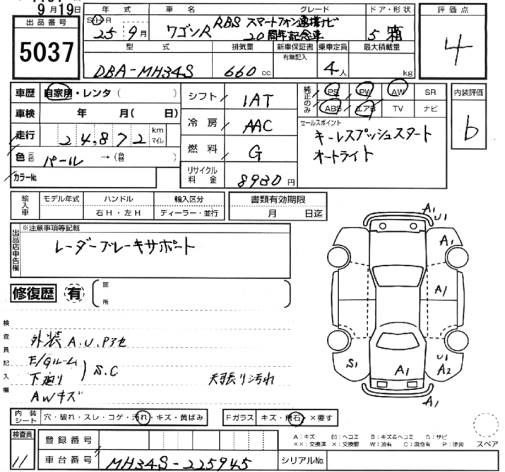 9月19日
出品番号
5037
年式 車名 グレード ドア・形状 評価点
25年9月 ワゴンR RBS スマートフォン連携ナビ 20周年記念車 5 箱 4
型式 排気量 新車保証書 乗車定員 最大積載量
有無記入
DBA-MH34S 660cc 4人 kg
車歴 自家用・レンタ( )
車検 年 月( 日)
走行 24,872 km マイル
色 パール → (替)
カラーNo.
シフト 1AT
冷房 AAC
燃料 G
リサイクル料金 8930円
純正のみ PS PW AW SR
ABS エアB TV ナビ
内装評価
b
セールスポイント
キーレスプッシュスタート
オートライト
輸入車 モデル年式 ハンドル 輸入区分
右H・左H ディーラー・並行
書類有効期限
月 日迄
出品店申告欄
※注意事項等記載
レーダーブレーキサポート
修復歴 有 箇所
検査員記入欄
外装 A.U.Pアセ
E/Gルーム
下廻り
S.C
AWキズ
天張り汚れ
A1
U1
A1
A1
A1
S1
U1
A2
A1
内装シート 穴・破れ・スレ・コゲ・汚れ・キズ・黄ばみ
Fガラス キズ・飛石・×要す
スペア
A:キズ U:ヘコミ B:キズ&ヘコミ S:サビ
××:交換済 W:波有 C:腐食 P:塗装
検査員 11
登録番号
車台番号 MH34S-225945
シリアルNo.